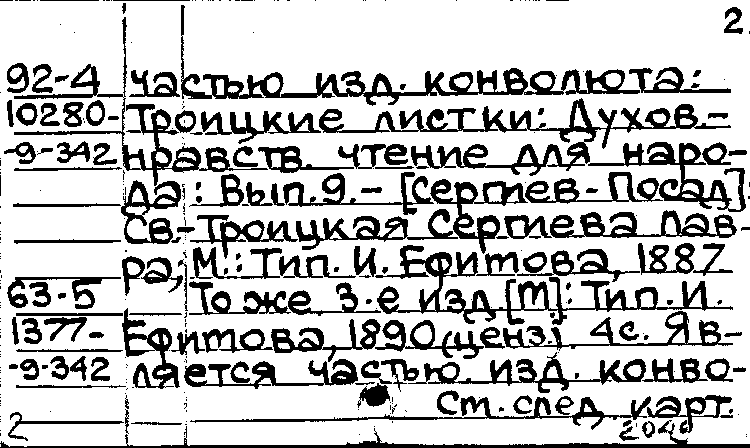 2.
92-4 частью изд. конволюта:
10280- Троицкие листки: Духов.-
-9-342 нравств. чтение для наро-
да: Вып.9.- [Сергиев-Посад]:
Св.-Троицкая Сергиева Лав-
ра; М.: Тип. И. Ефимова, 1887.
63-5 То же. 3-е изд. [М]: Тип. И.
1377- Ефимова, 1890 (ценз). 4с. Яв-
-9-342 ляется частью изд. конво-
См. след. карт.
2 2040